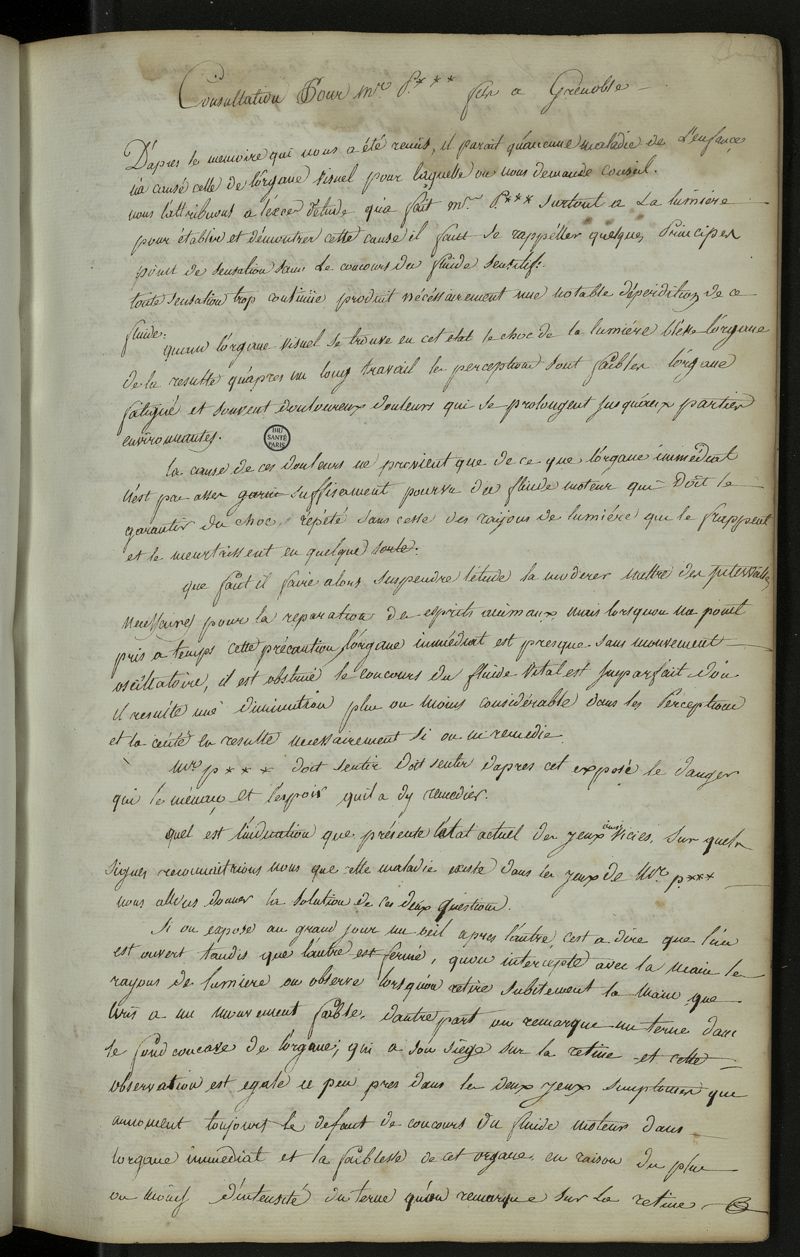 Consultation Pour mr P*** fils a Grenoble
D'apres le memoire qui nous a été remis, il parait qu'aucune maladie de L'enfance
n'a causé celle de l'organe visuel pour laquelle on nous demande conseil.
nous l'attribuons a l'exces d'etude qu'a fait mr P*** surtout a La lumiére
pour établir et démontrer cette cause il faut se rappéller quelques Principes
point de sensation sans Le concours du fluide sensitif.
toute sensation trop continüe produit nécéssairement une notable déperdition de ce
fluide.
quand l'organe visuel se trouve en cet etat le choc de la lumiére blesse l'organe
de la resulte qu'apres un long travail les perceptions sont faibles l'organe
fatigué et souvent douloureux douleurs qui se prolongent jusqu'aux parties
environnantes.
BIU SANTÉ PARIS
la cause de ces douleurs ne provient que de ce que l'organe immédiat
n'est pas assez garni suffisament pourvu du fluide moteur qui doit le
garantir du choc répété sans cesse des raijons de lumiére qui le frappent
et le meurtrissent en quelque sorte.
que faut il faire alors suspendre l'étude la moderer mettre des intervalles
necessaires pour la reparation des esprits animaux mais lorsqu'on na point
pris a temps cette précaution l'organe immédiat est presque sans mouvement
oscillatoire, il est obstrué le concours du fluide vital est imparfait d'ou
il resulte une diminution plus ou moins considérable dans les Perceptions
et la cécité en resulte necessairement si on ni remedie
Mr p*** doit sentir doit sentir d'apres cet exposé le danger
qui le ménace et l'espoir qu'il a d'y remedier.
quel est l'indication que présente l'etat actuel des yeux ainsi viciés, sur quels
signes reconnaitrions nous que cette maladie existe dans les yeux de Mr. p***
nous allons donner la solution de ces deux questions.
Si on expose au grand jour un oeil apres l'autre, c'est a dire que l'un
est ouvert tandis que l'autre est fermé, qu'on intercepte avec la main les
rayons de lumiere on observe lorsqu'on retire subitement la main que
l'iris a un mouvement faible. d'autre part on remarque un terne dans
le fond concave de l'organe; qui a son siége sur la retine et cette
observation est egale a peu pres dans les deux yeux simptomes qui
annoncent toujours le defaut de concours du fluide moteur dans
l'organe immediat et la faiblesse de cet organe. en raison du plus
ou moins d'intensité du terne qu'on remarque sur La retine